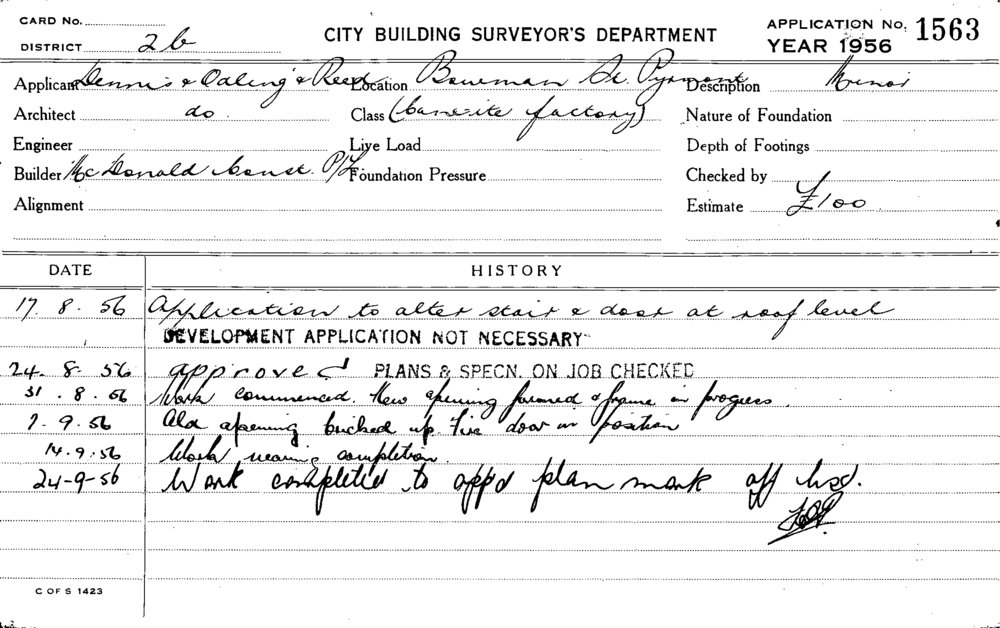 CARD No.
DISTRICT 2b
CITY BUILDING SURVEYOR'S DEPARTMENT
APPLICATION No. 1563
YEAR 1956
Applicant Dennis & Odling & Reed Location Bowman St. Pyrmont Description Minor
Architect do. Class (Caneite factory) Nature of Foundation
Engineer Live Load Depth of Footings
Builder McDonald Const. P/L Foundation Pressure Checked by
Alignment Estimate £100
DATE HISTORY
17. 8. 56 Application to alter stair & door at roof level
DEVELOPMENT APPLICATION NOT NECESSARY
24. 8. 56 approved PLANS & SPECN. ON JOB CHECKED
31. 8. 56 Work commenced. New opening formed & frame in progress.
7. 9. 56 Old opening bricked up. Fire door in position
14. 9. 56 Work nearing completion.
24-9-56 Work completed to app'd plan mark off
C OF S 1423